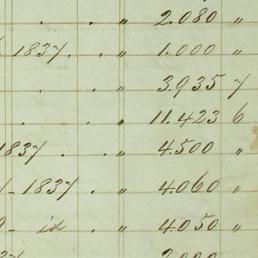 . . " 2.080 "
1837. . " 1.000 "
. . " 3.935 7
. . " 11.423 6
1837. . " 4.500 "
- 1837. . " 4.060 "
- id . " 4.050 "